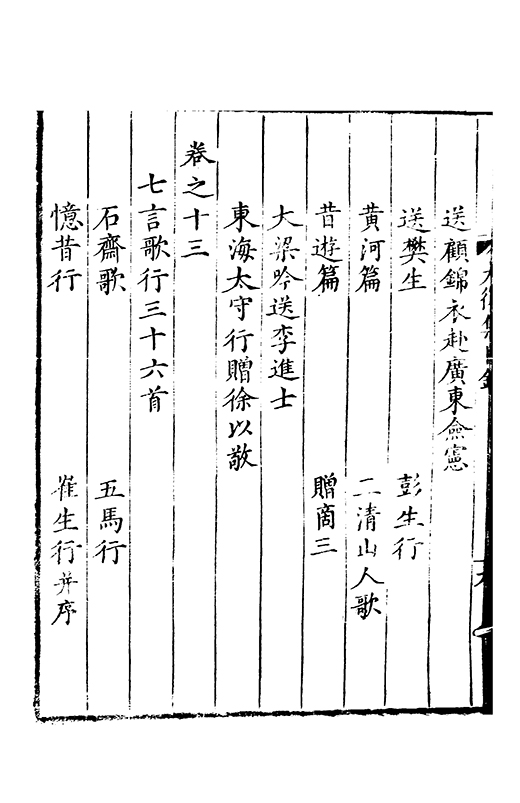 送顧錦衣赴廣東僉憲
送樊生　彭生行
黃河篇　二清山人歌
昔遊篇　贈商三
大梁吟送李進士
東海太守行贈徐以敬
卷之十三
七言歌行三十六首
石齋歌　五馬行
憶昔行　崔生行并序